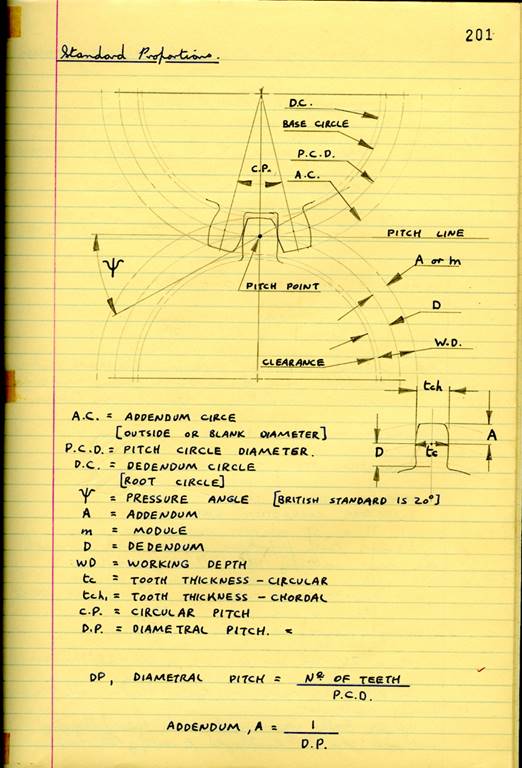 201
Standard Proportions.
D.C.
BASE CIRCLE
P.C.D.
A.C.
C.P.
PITCH LINE
ψ
A or m
PITCH POINT
D
W.D.
CLEARANCE
tch
A
D
tc
A.C. = ADDENDUM CIRCE
[OUTSIDE OR BLANK DIAMETER]
P.C.D. = PITCH CIRCLE DIAMETER.
D.C. = DEDENDUM CIRCLE
[ROOT CIRCLE]
ψ = PRESSURE ANGLE [BRITISH STANDARD IS 20°]
A = ADDENDUM
m = MODULE
D = DEDENDUM
WD = WORKING DEPTH
tc = TOOTH THICKNESS - CIRCULAR
tch, = TOOTH THICKNESS - CHORDAL
C.P. = CIRCULAR PITCH
D.P. = DIAMETRAL PITCH. =
DP, DIAMETRAL PITCH = Nº OF TEETH
P.C.D.
ADDENDUM, A = 1
D.P.